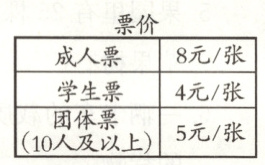 票价
成人票 8元/张
学生票 4元/张
团体票
(10人及以上) 5元/张